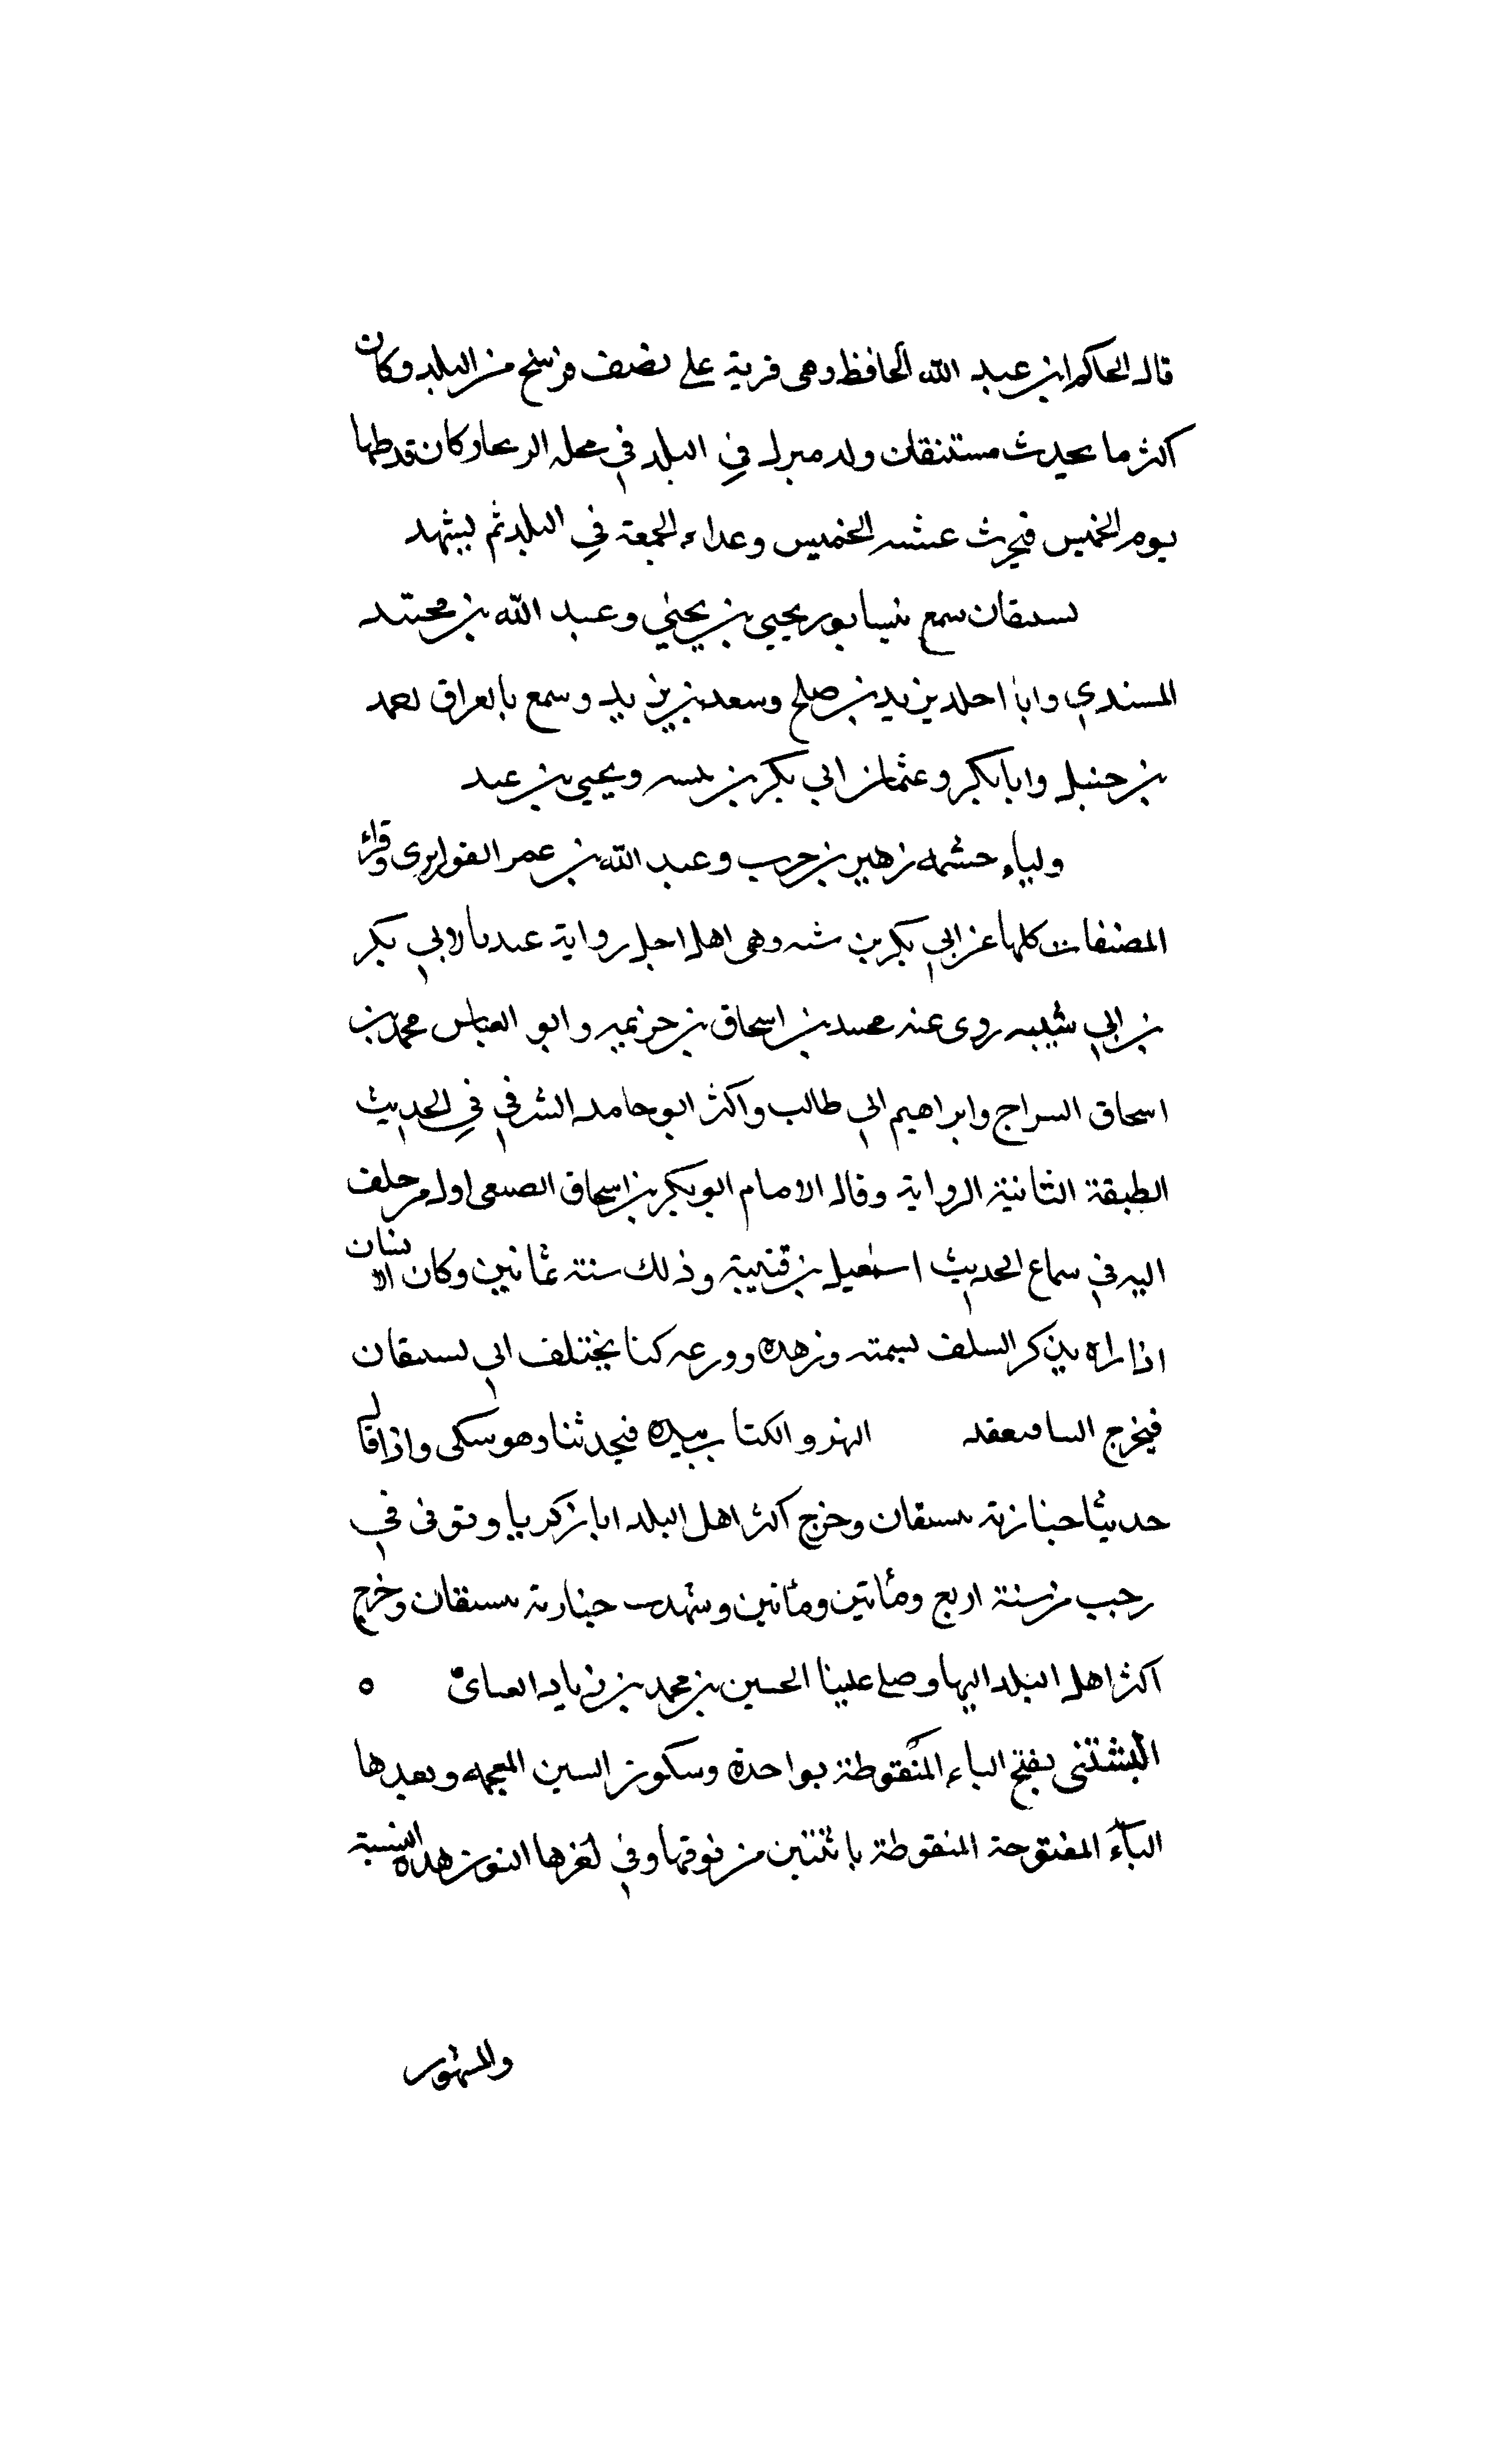 قال الحاكم ابن عبد الله الحافظ وهى قرية على نصف فرسخ من البلد وكان
اكثر ما يحدث مستنقان وله منزل في البلد في محله وكان
يوم الخميس فيحدث عشه الخميس وغداء الجمعة في البلد ثم ليشهد
سمع نيسابور يحيي بن يحيي وعبد الله بن محمد
المسندي وابا بن صلح وسعد بن يزيد وسمع بالعراق
بن حنبل وابا بكر وعثمان ابي بكر بن ويحيى بن عبد
زهير بن حرب وعبد الله بن عمر القواريرى وقراء
المصنفات كلها عن ابي بكر بن شه وهى اهل اجل رواية لابي بكر
بن ابي شيبه روى عنه محمد بن اسحاق بن خزيمه وابو العباس محمد بن
اسحاق السراج وابراهيم ابي طالب واكثر ابو حامد الشرفي في الحديث
الطبقة الثانية الرواية وقال الامام ابو بكر بن اسحاق الصبعى اول من خلف
اليه في سماع الحديث اسمعيل بن قتيبة وذلك سنة ثمانين وكان الانسان
اذا راه يذكر السلف لسمته وزهده وورعه كنا نختلف الى بستقان
فيخرج الينا فيقعد النهر والكتاب بيده فيحدثنا وهو يبكى واذا قال
حديثا جنازته بستقان وخرج اكثر اهل البلد ابا زكريا وتوفى في
رجب من سنة اربع ومأتين ومأنين وشهدت جنازته بستقان وخرج
اكثر اهل البلد اليها وصلى علينا الحسين بن محمد بن زياد العبانى ٥
البشتنى بفتح الباء المنقوطة بواحدة وسكون السين المعجمه وبعدها
الباء المفتوحة المنقوطة باثنتين من فوقها وفي اخرها النون هده النسبة
والمشهور